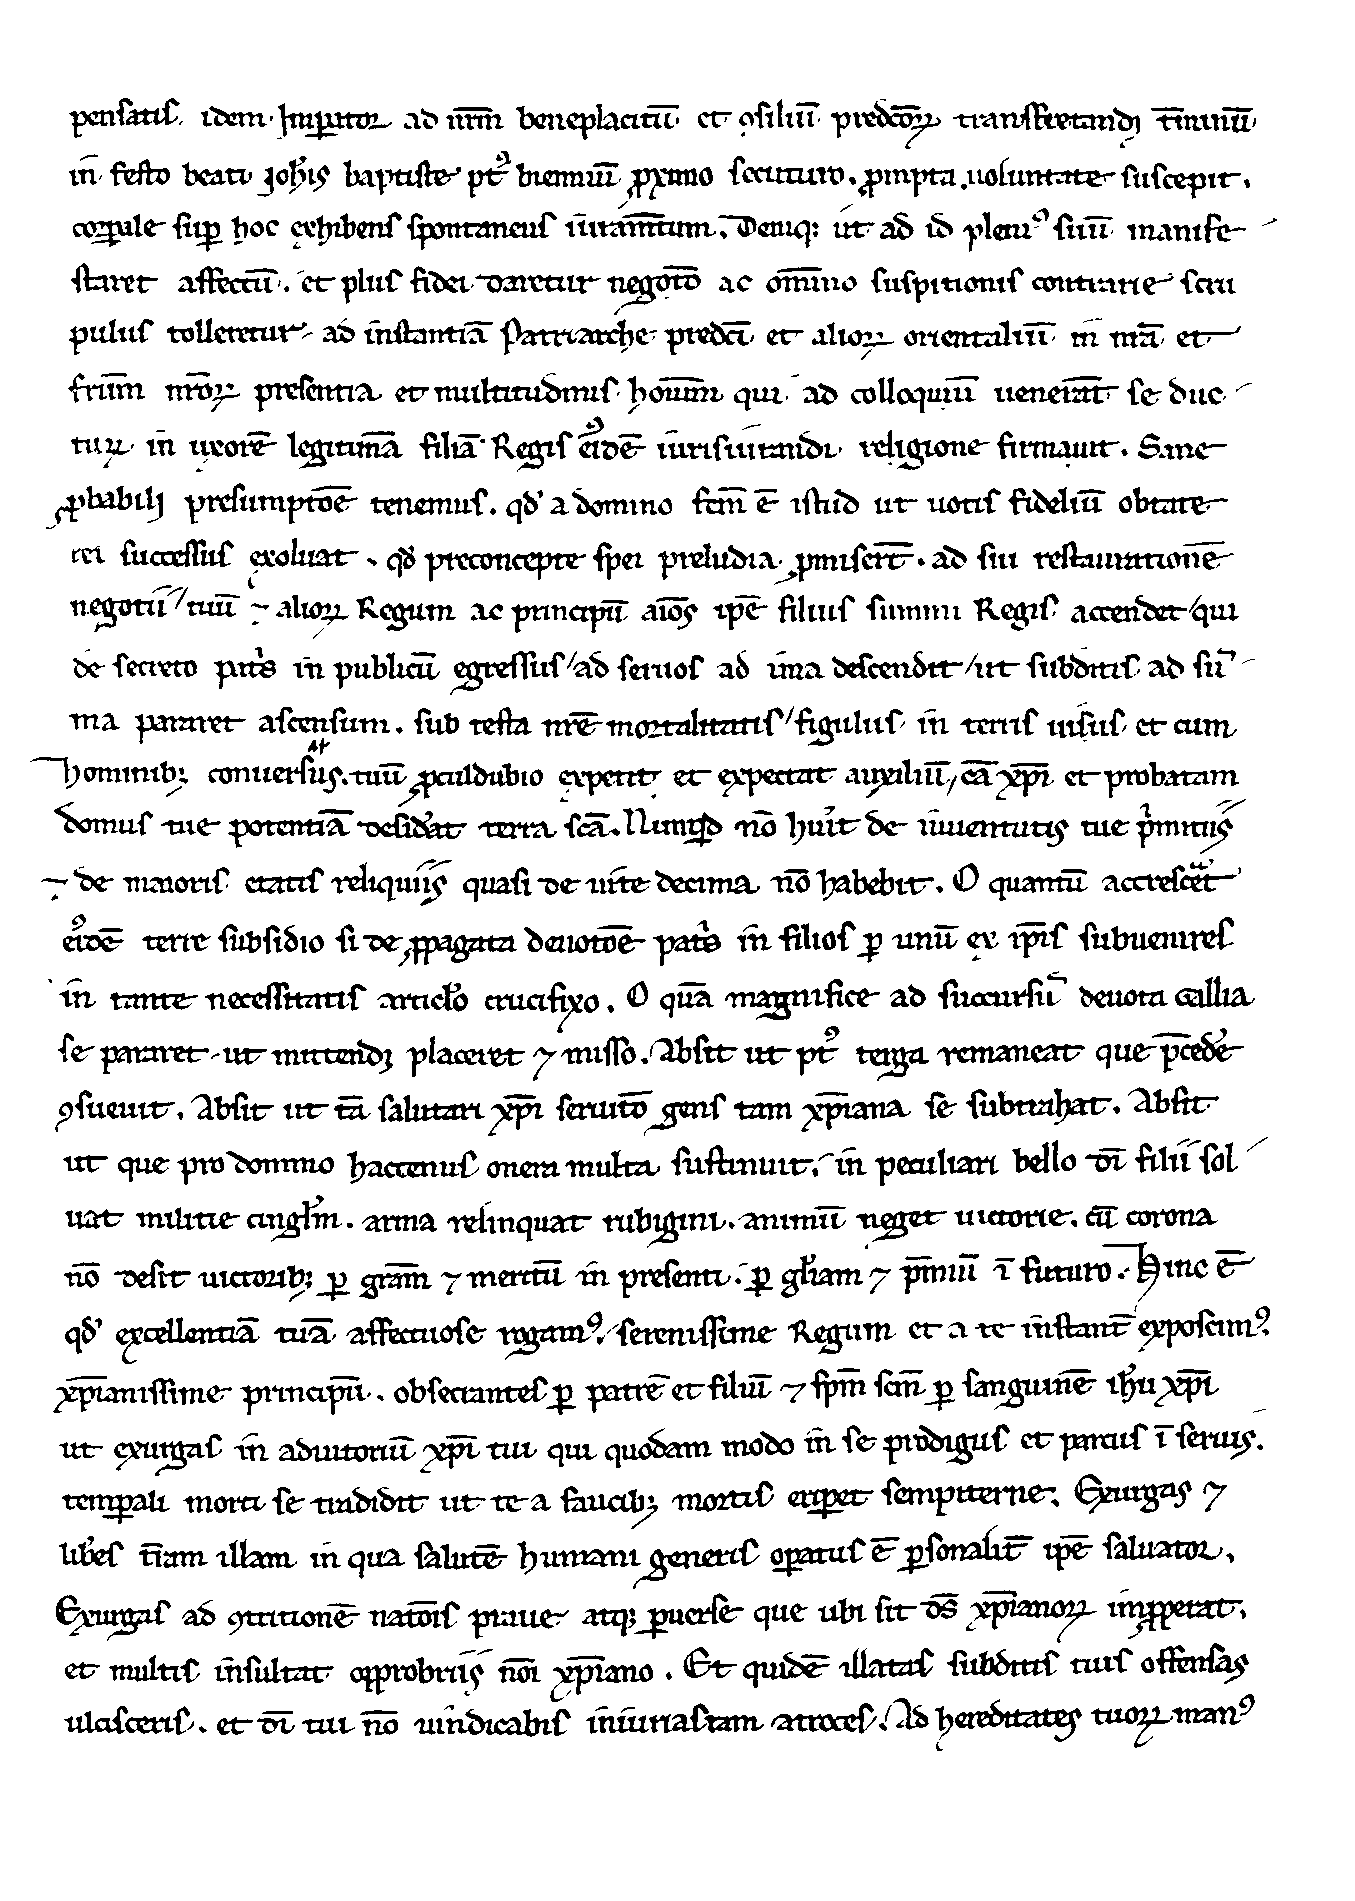 pensatis. idem. Imꝑator ad nr̄m beneplacitū. et ꝯsiliū predc̄oꝝ transfretandi t̄minū.
in festo beati Joh̄is baptiste pt᷒ bienniū ꝓximo secuturo. ꝓmpta uoluntate suscepit.
corꝑale suꝑ hoc exhibens spontaneus iuram̄tum. Deniqꝫ ut ad id pleni᷒ suū manife
staret affectū. et plus fidei daretur negoc̄o ac om̄ino suspitionis contrarie scru
pulus tolleretur, ad instantiā Patriarche predc̄i et alioꝝ orientaliū in mā et
fr̄um nr̄oꝝ presentia et multitudinis hoīum qui ad colloquiū uenerāt se duc
turꝝ in uxorē legitimā filiā Regis ei᷒dē iurisiurandi religione firmauit. Sane
ꝓbabili presumptōe tenemus. qd̓ a domino fc̄m ē istud ut uotis fideliū obtate
rei successus exoluat. qd̓ preconcepte spei preludia ꝓmiserūt. ad sui restaurationē
negotii / tuū ⁊ alioꝝ Regum ac principū aīos ip̄e filius summi Regis accendet / qui
de secreto pat̓s in publicū egressus / ad seruos ad ima descendit / ut subditis ad sū
ma pararet ascensum. sub testa nr̄e mortalitatis / figulus in terris uisus et cum
hominibꝫ conuersatus. tuū ꝓculdubio expetit et expectat auxiliū, cā xp̄i et probatam
domus tue potentiā desid̓at terra sc̄a. Nunquid nō hu̓it de iuuentutis tue p̓mitiis
⁊ de maioris etatis reliquiis quasi de uite decima nō habebit. O quantū accresceret
ei᷒dē terre subsidio si de ꝓpagata deuotōe pat̓s in filios ꝑ unū ex ip̄is subuenires
in tante necessitatis articl̓o crucifixo. O quā magnifice ad succursū deuota Gallia
se pararet, ut mittendꝫ placeret ⁊ misso. Absit ut pt᷒ terga remaneat que p̄ced̓e
ꝯsueuit. Absit ut tā salutari xp̄i seruitō gens tam xp̄iana se subtrahat. Absit
ut que pro domino hactenus onera multa sustinuit, in peculiari bello dī filii sol
uat militie cingl̓m. arma relinquat rubigini. animū neget uictorie. cū corona
nō desit uictoribꝫ ꝑ grām ⁊ meritū in presenti. ꝑ gl̓iam ⁊ p̄miū ī futuro. Hinc ē
qd̓ excellentiā tuā affectuose rogam᷒. serenissime Regum et a te instant̄ exposcim᷒.
xp̄ianissime principū. obsecrantes ꝑ patrē et filiū ⁊ sp̄m sc̄m ꝑ sanguinē ih̓u xp̄i
ut exurgas in adiutoriū xp̄i tui qui quodam modo in se prodigus et parcus ī seruis.
temꝑali morti se tradidit ut te a faucibꝫ mortis eriꝑet sempiterne. Exurgas ⁊
lib̓es t̄ram illam in qua salutē humani generis oꝑatus ē ꝑsonalit̄ ip̄e saluator.
Exurgas ad ꝯtritionē natōis praue atqꝫ ꝑuerse que ubi sit ds̄ xp̄ianoꝝ imꝓperat.
et multis insultat opprobriis nōi xp̄iano. Et quidē illatas subditis tuis offensas
ulcisceris. et dī tui nō uindicabis iniurias tam atroces. Ad hereditates tuoꝝ man᷒